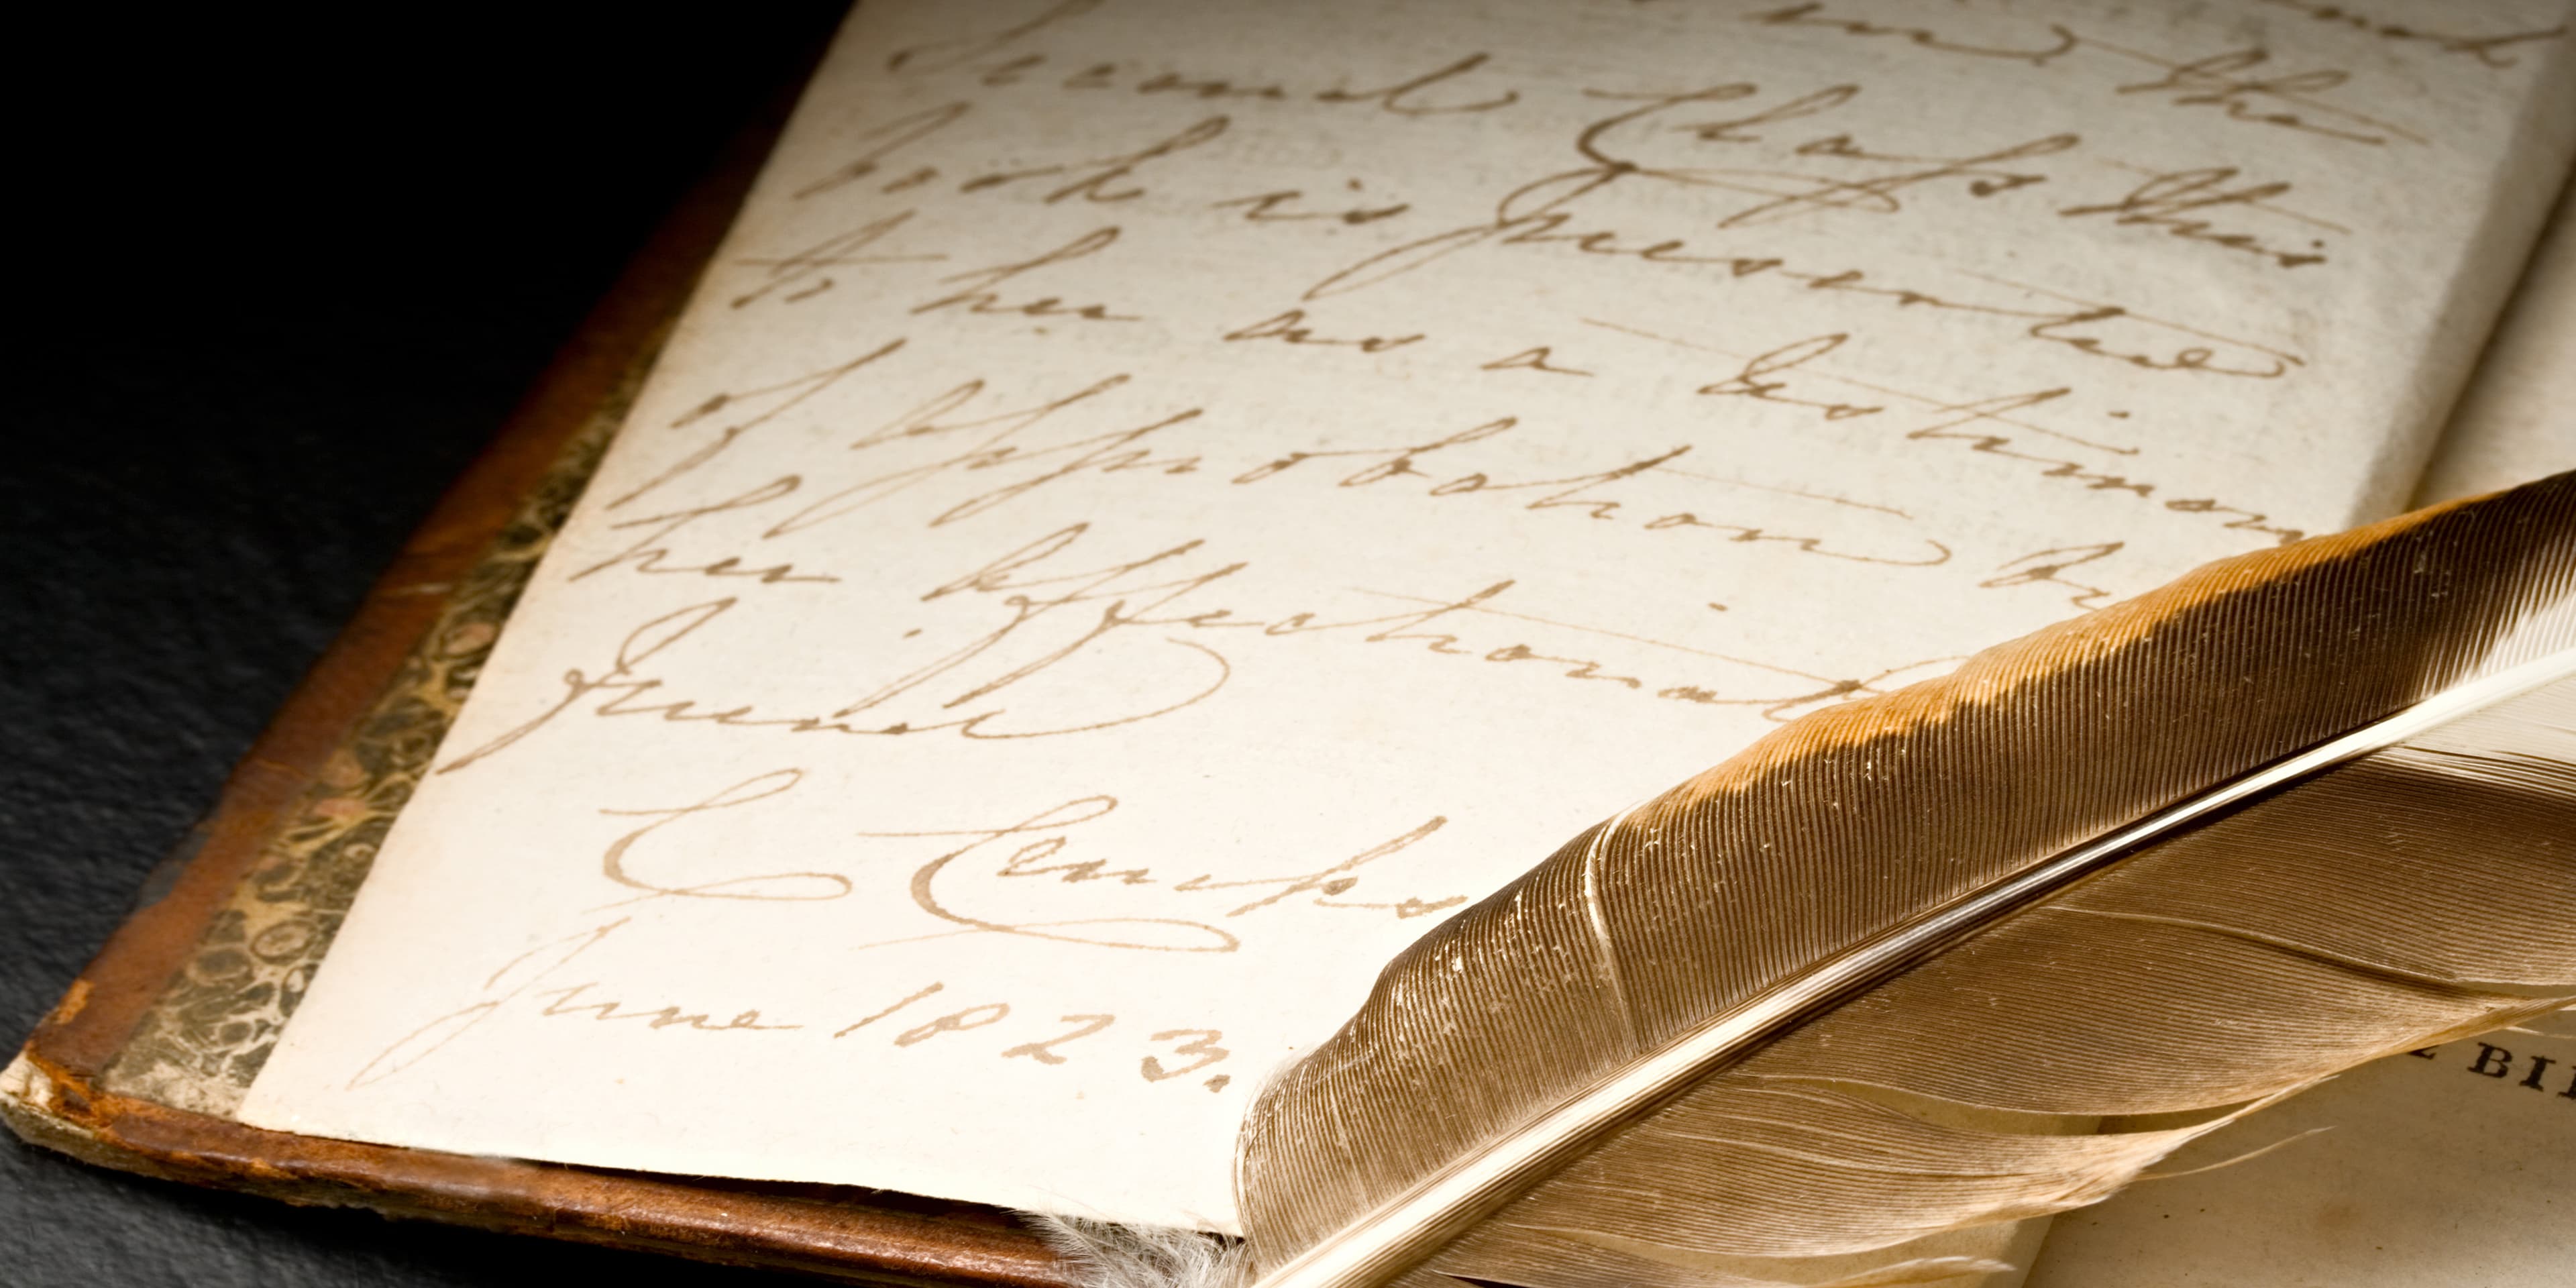 in the
Second Class this
book is presented
to her as a testimony
of Approbation by
her Affectionate
Friend
C
June 1823.
BI